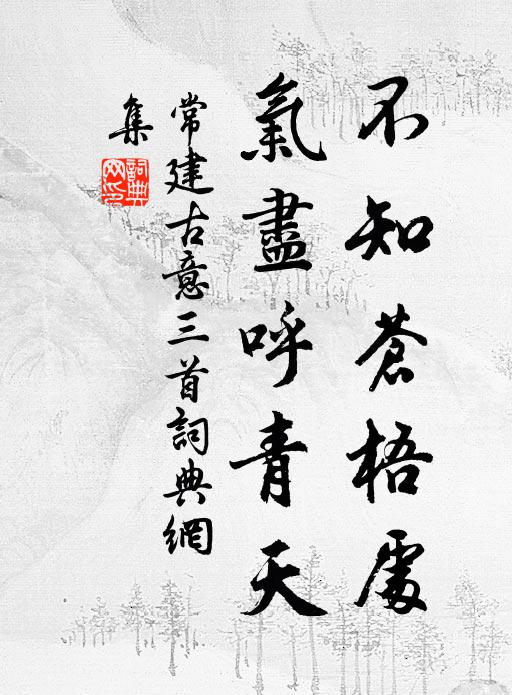 不知蒼梧處
氣盡呼青天
常建古意三首詞典網
集
詞典網